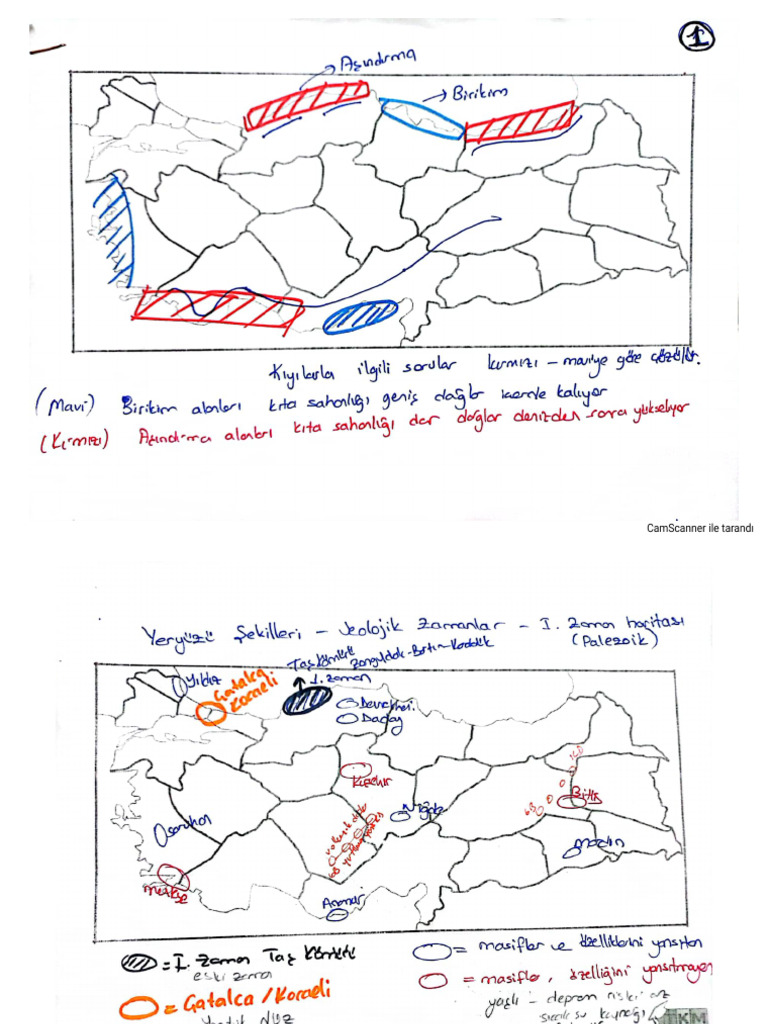 1
Aşındırma
Birikim
Kıyılarla ilgili sorular kırmızı - maviye göre çözülür.
(Mavi) Birikim alanları kıta sahanlığı geniş dağlar içerde kalıyor
(Kırmızı) Aşındırma alanları kıta sahanlığı dar dağlar denizden sonra yükseliyor
CamScanner ile tarandı
Yeryüzü Şekilleri - Jeolojik Zamanlar - I. Zaman haritası
(Palezoik)
Taşkömürü Zonguldak-Bartın-Karabük
I. zaman
Yıldız
Çatalca
Kocaeli
Devrekani
Daday
Kırşehir
Niğde
Bitlis
Mardin
Saruhan
Menteşe
Anamur
= I. Zaman Taş Kömürü
eski zaman
= masifler ve özelliklerini yansıtan
= Çatalca / Kocaeli
= masifler, özelliğini yansıtmayan
yaşlı - deprem riski az
sıcak su kaynağı
TKM